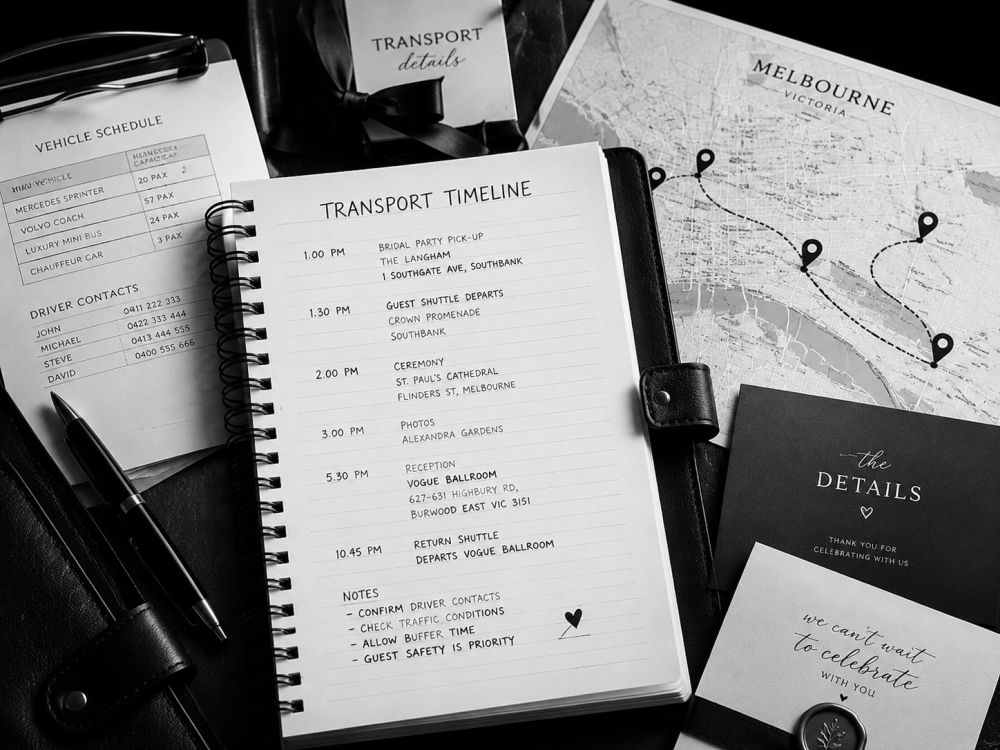 TRANSPORT
details
MELBOURNE
VICTORIA
VEHICLE SCHEDULE
VEHICLE
MERCEDES SPRINTER 20 PAX
VOLVO COACH 57 PAX
LUXURY MINI BUS 24 PAX
CHAUFFEUR CAR 3 PAX
DRIVER CONTACTS
JOHN 0411 222 333
MICHAEL 0422 333 444
STEVE 0413 444 555
DAVID 0400 555 666
TRANSPORT TIMELINE
1.00 PM BRIDAL PARTY PICK-UP
THE LANGHAM
1 SOUTHGATE AVE, SOUTHBANK
1.30 PM GUEST SHUTTLE DEPARTS
CROWN PROMENADE
SOUTHBANK
2.00 PM CEREMONY
ST. PAUL'S CATHEDRAL
FLINDERS ST, MELBOURNE
3.00 PM PHOTOS
ALEXANDRA GARDENS
5.30 PM RECEPTION
VOGUE BALLROOM
627-631 HIGHBURY RD,
BURWOOD EAST VIC 3151
10.45 PM RETURN SHUTTLE
DEPARTS VOGUE BALLROOM
NOTES
- CONFIRM DRIVER CONTACTS
- CHECK TRAFFIC CONDITIONS
- ALLOW BUFFER TIME
- GUEST SAFETY IS PRIORITY
the
DETAILS
THANK YOU FOR
CELEBRATING WITH US
we can't wait
to celebrate
WITH YOU